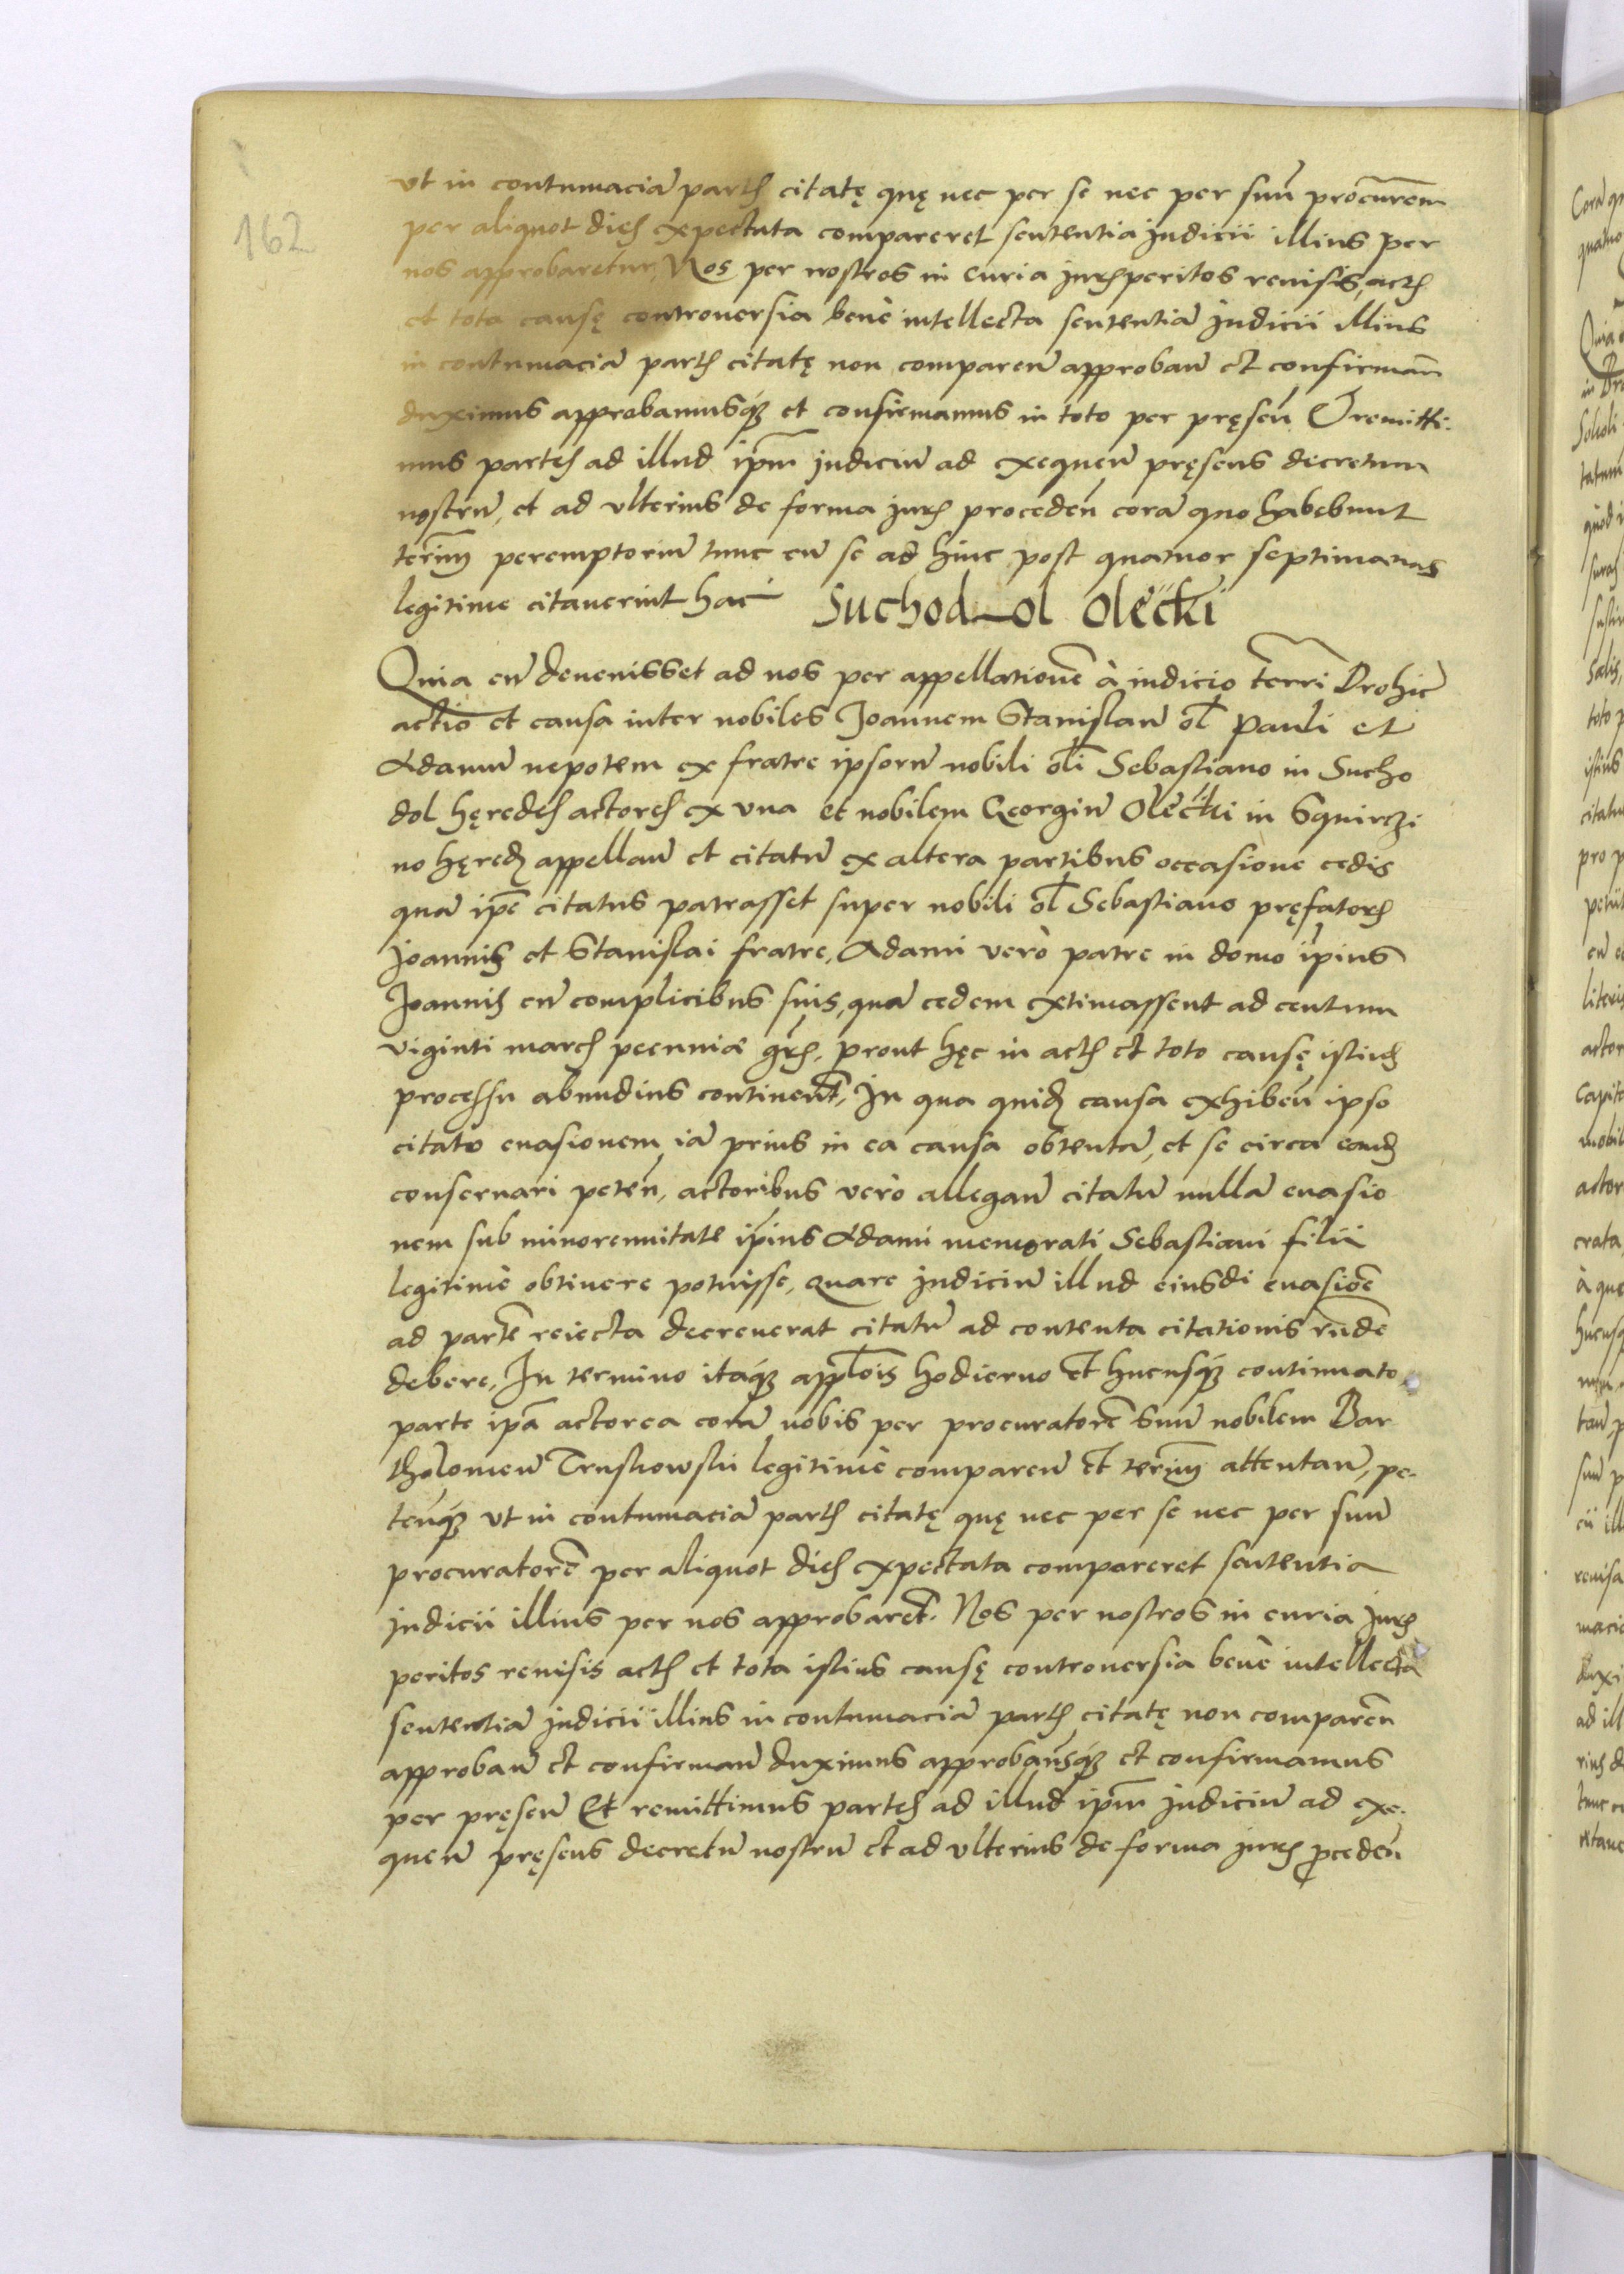 162
ut in contumaciā partis citatę quę nec per se nec per suū procūrem
per aliquot dies expectata compareret sententia judicii illius per
nos approbaretur, Nos per nostros in Curia jurisperitos revisis, actis
et tota causę controuersia benè intellecta sententiā judicii illius
in contumaciā partis citatę non compareñ approbañ et confirmañ
duximus approbamusq́ȝ et confirmamus in toto per pręseñ Et remitti-
mus partes ad illud ipm̄ judiciū ad exequeñ pręsens decretum
nostrū, et ad ulterius de forma juris procedeñ corā quo habebunt
term̄ peremptoriū tunc cū se ad hinc post quatuor septimanas
legitime citauerint hac Suchod-ol Oleċki
Quia cū deuenisset ad nos per appellationē à iudicio terrī Drohic̄
actio et causa inter nobiles Joannem Stanislaū ol̄ Pauli et
Adamū nepotem ex fratre ipsorū nobili oli̅ Sebastiano in Sucho
dol hęredes actores ex una et nobilem Georgiū Olecki in Squirczi
no hęredȝ appellañ et citatū ex altera partibus occasione cedis
quā ipē citatus patrasset super nobili ol̄ Sebastiano pręfatorȝ
Joannis et Stanislai fratre, Adami verò patre in domo ipius
Joannis cū complicibus suis, quā cedem extimassent ad centum
viginti marcȝ pecuniæ grȝ, prout hęc in actis et toto causę istius
processu abundius continent̄, In qua quidȝ causa exhibeñ ipso
citato euasionem iā prius in ea causa obtentā, et se circa eandȝ
conseruari peteñ, actoribus verò allegañ citatū nullā euasio
nem sub minorennitate ipius Adami memorati Sebastiani filii
legitimè obtinere potuisse, quare judiciū illud eiusdi euasiōe
ad partē reiecta decreuerat citatū ad contenta citationis rūdē
debere, In termino itaq́ȝ applōis hodierno et hucusq́ȝ continuato
parte ipā actorea corā nobis per procuratorē suū nobilem Bar
tholomeū Truskowski legitimè compareñ et term̄ attentañ, pe-
teñq́ȝ ut in contumaciā partis citatę quę nec per se nec per suū
procuratorē per aliquot dies expectata compareret sententia
judicii illius per nos approbaret̄. Nos per nostros in curia juris
peritos reuisis actis et tota istius causę controuersia benè intellecta
sententiā judicii illius in contumaciā partis citatę non compareñ
approbañ et confirmañ duximus approbam̄sq́ȝ et confirmamus
per pręseñ Et remittimus partes ad illud ipm̄ judiciū ad exe-
queñ pręsens decretū nostrū et ad ulterius de forma juris p̄cedeñ